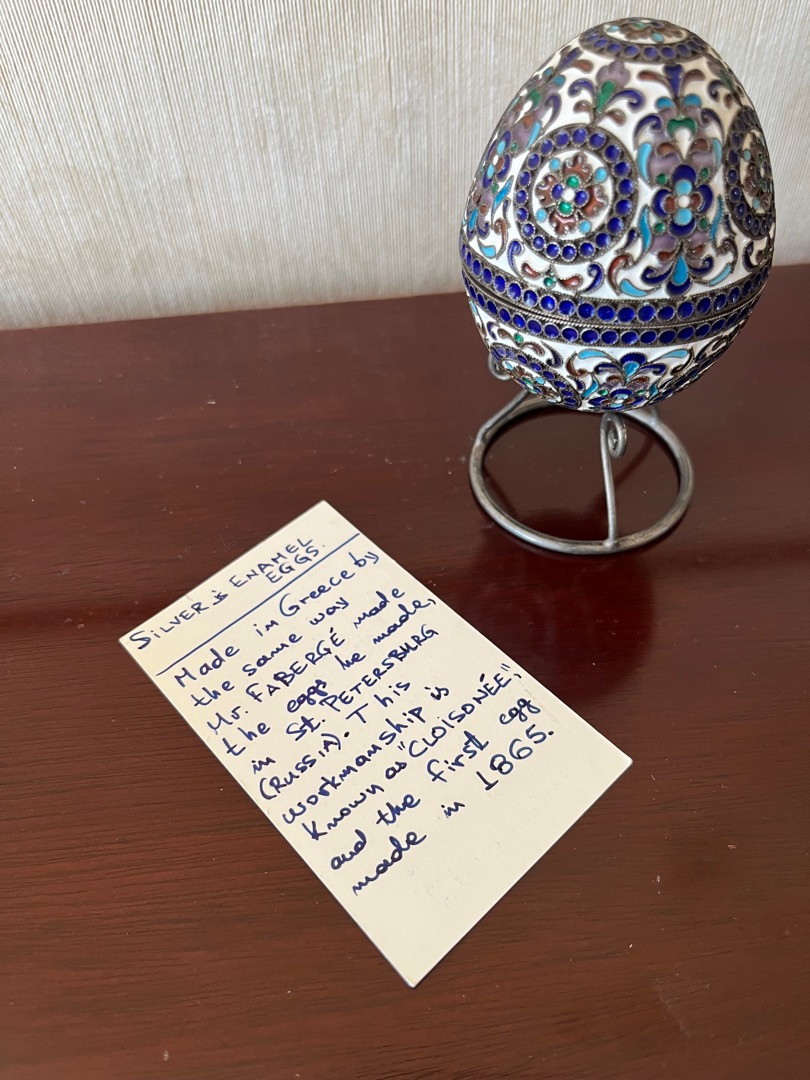 SILVER & ENAMEL
EGGS.
Made in Greece by
the same way
Mr. FABERGÉ made
the eggs he made,
in St. PETERSBURG
(RUSSIA). This
workmanship is
known as "CLOISONÉE",
and the first egg
made in 1865.